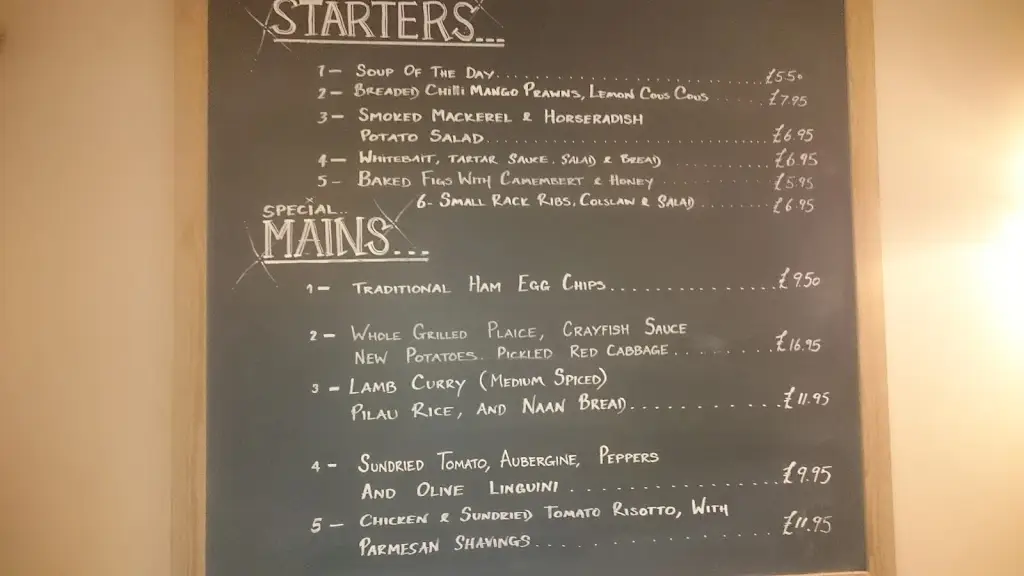 STARTERS...
1- SOUP OF THE DAY. £5.50
2- BREADED CHILLI MANGO PRAWNS, LEMON COUS COUS £7.95
3- SMOKED MACKEREL & HORSERADISH
POTATO SALAD. £6.95
4- WHITEBAIT, TARTAR SAUCE. SALAD & BREAD £6.95
5- BAKED FIGS WITH CAMEMBERT & HONEY £5.95
6- SMALL RACK RIBS, COLSLAW & SALAD £6.95
SPECIAL..
MAINS...
1- TRADITIONAL HAM EGG CHIPS. £9.50
2- WHOLE GRILLED PLAICE, CRAYFISH SAUCE
NEW POTATOES. PICKLED RED CABBAGE. £16.95
3- LAMB CURRY (MEDIUM SPICED)
PILAU RICE, AND NAAN BREAD. £11.95
4- SUNDRIED TOMATO, AUBERGINE, PEPPERS
AND OLIVE LINGUINI. £9.95
5- CHICKEN & SUNDRIED TOMATO RISOTTO, WITH
PARMESAN SHAVINGS. £11.95